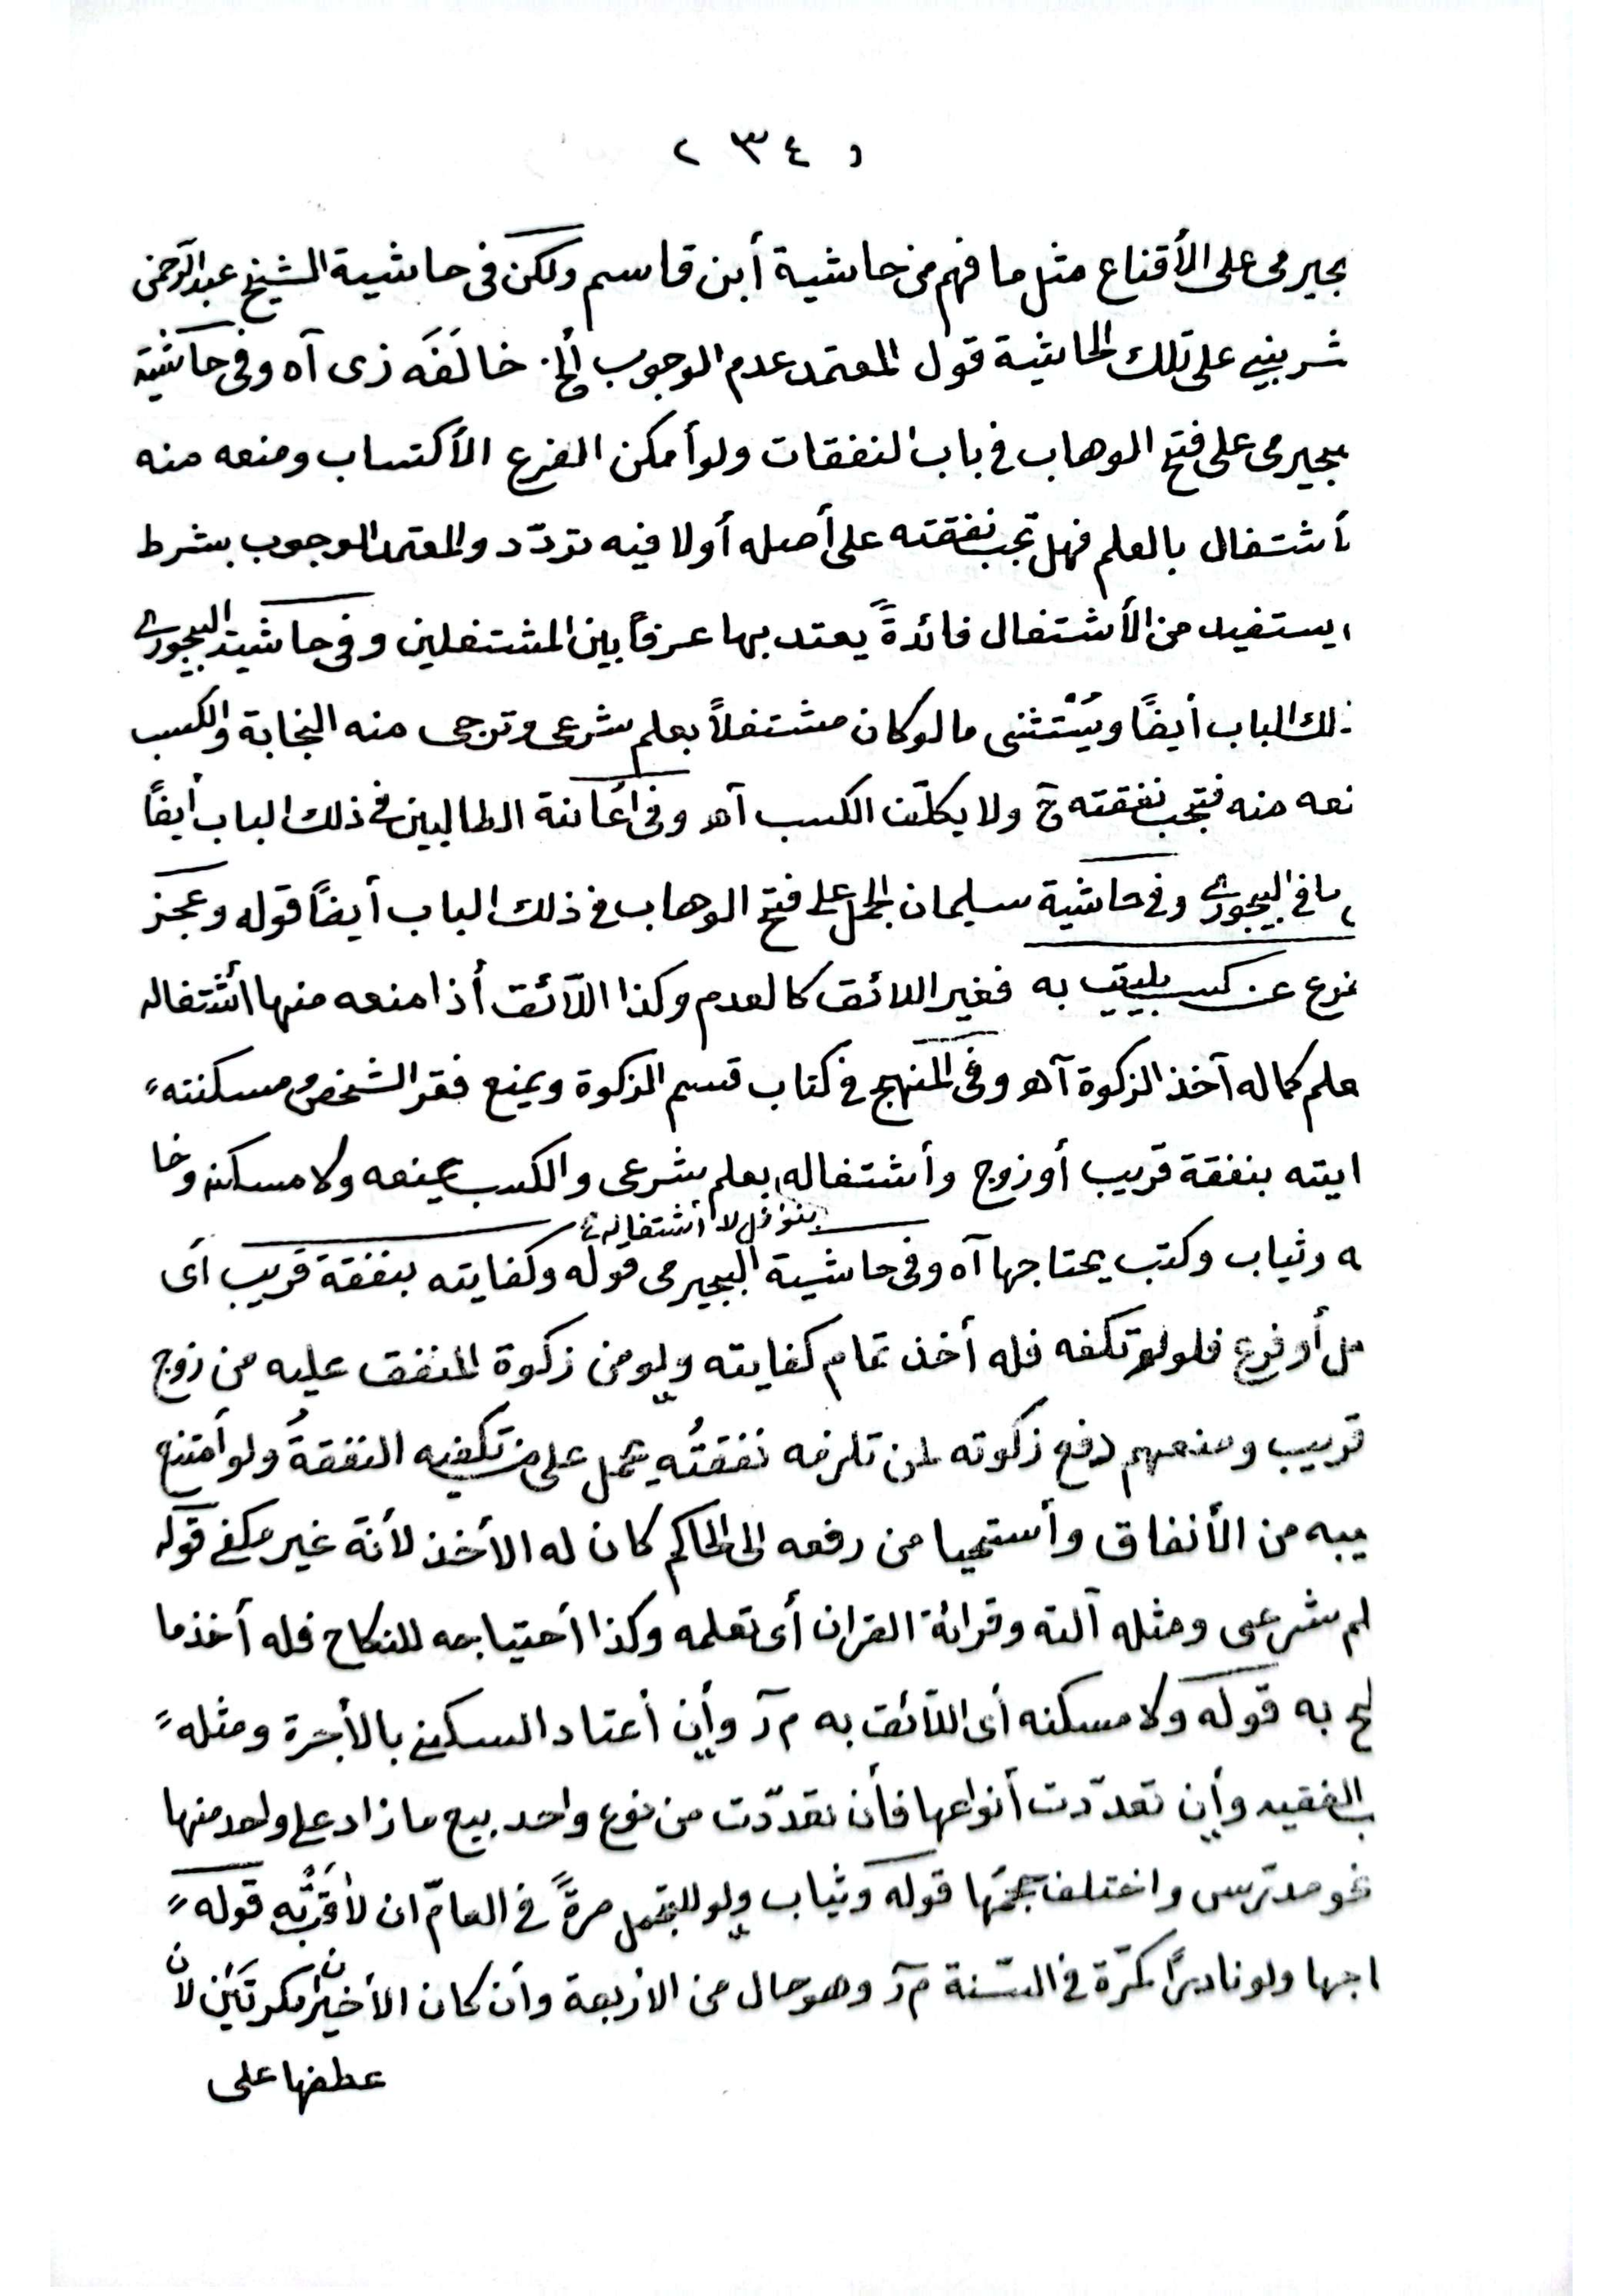 ٢٣٤
بجيرمى على الأقناع مثل ما فهم من حاشية أبن قاسم ولكن فى حاشية الشيخ عبدالرحمن
شربينى على تلك الحاشية قول المعتمد عدم الوجوب ألخ. خالَفَه زى آه وفى حاشية
بجيرمى على فتح الوهاب فى باب النفقات ولوأمكن الفرع الأكتساب ومنعه منه
أشتغال بالعلم فهل تجب نفقته على أصله أولا فيه تردّد والمعتمد الوجوب بشرط
يستفيد من الأشتغال فائدةً يعتد بها عرفاً بين المشتغلين وفى حاشية البيجورى
ذلك الباب أيضًا ويُسْتثنى مالوكان مشتغلاً بعلم شرعى وترجى منه النجابة والكسب
نعه منه فتجب نفقته ح ولا يكلّف الكسب آه وفى أعانة الطالبين فى ذلك الباب أيضًا
ما فى البيجورى وفى حاشية سليمان الجمل على فتح الوهاب فى ذلك الباب أيضًا قوله وعجز
فرع عن كسب يليق به فغير اللائق كالعدم وكذا اللآئق أذا منعه منها اشتغاله
علم كماله آخذ الزكوة آه وفى المنهج فى كتاب قسم الزكوة ويمنع فقر الشخص ومسكنته
ايته بنفقة قريب أوزوج وأشتغاله بعلم شرعى والكسب يمنعه ولا مسكنه وخا
بنوافل لا أشتغاله
ه وثياب وكتب يحتاجها آه وفى حاشية البجيرمى قوله وكفايته بنفقة قريب أى
صل أوفرع فلولم تكفه فله أخذ تمام كفايته ولومن زكوة المنفق عليه من زوج
قريب ومنعهم دفع زكوته لمن تلزمه نفقتُه يحمل على من تكفيه النفقةُ ولوأمتنع
يبه من الأنفاق وأستحيا من رفعه الى الحاكم كان له الأخذ لأنّه غير مكفى قوله
لم شرعى ومثله آلته وقرائة القران أى تعلمه وكذا أحتياجه للنكاح فله أخذ ما
لح به قوله ولا مسكنه أى اللآئق به م ر وأن أعتاد السكنى بالأجرة ومثله
ب الفقيه وأن تعدّدت أنواعها فأن تعدّدت من نوع واحد بيع ما زاد على واحد منها
نحو مدرّس واختلف حجمُها قوله وثياب ولو للتجمل مرةً فى العامّ ان لأقتٍ به قوله
اجها ولو نادرًا كمرّة فى السّنة م ر وهو حال من الاربعة وأن كان الأخيران مكرتَيْن لأن
عطفها على